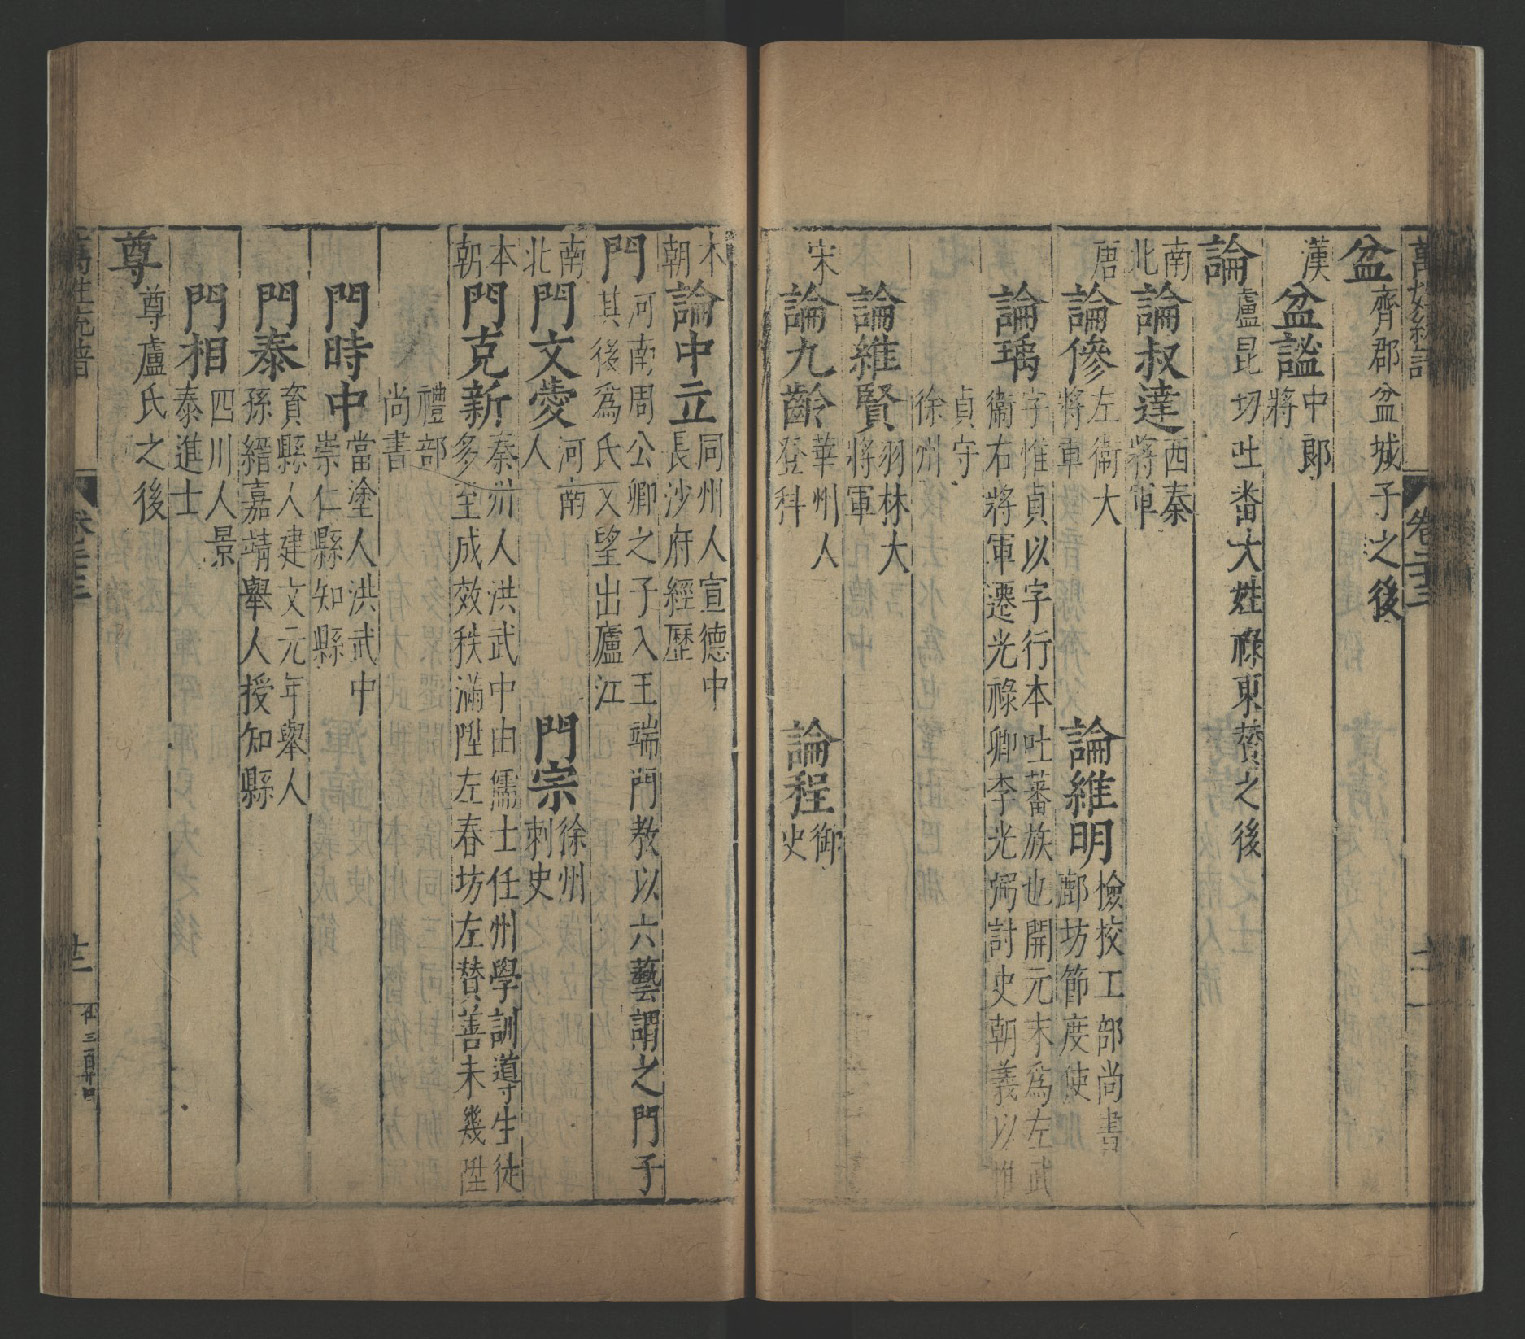 盆
齊郡盆城子之後
漢
盆謐
中郎
將
論
盧昆切吐畨大姓祿東贊之後
南
北
論叔達
西秦
將軍
唐
論慘
左衞大
將軍
論維明
檢挍工部尚書
鄜坊節度使
論瑀
字惟貞以字行本吐蕃族也開元末爲左武
衞右將軍遷光祿卿李光弼討史朝義以惟
貞守
徐州
論維賢
羽林大
將軍
宋
論九齡
華州人
登科
論程
御
史
朝
論中立
同州人宣德中
長沙府經歷
門
河南周公卿之子入王端門教以六藝謂之門子
其後爲氏又望出廬江
南
北
門文愛
河南
人
門宗
徐州
刺史
本
朝
門克新
秦州人洪武中由儒士任州學訓導生徒
多至成效秩滿陞左春坊左賛善未幾陞
禮部
尚書
門時中
當塗人洪武中
崇仁縣知縣
門泰
育縣人建文元年舉人
孫縉嘉靖舉人授知縣
門相
四川人景
泰進士
尊
尊盧氏之後
卷